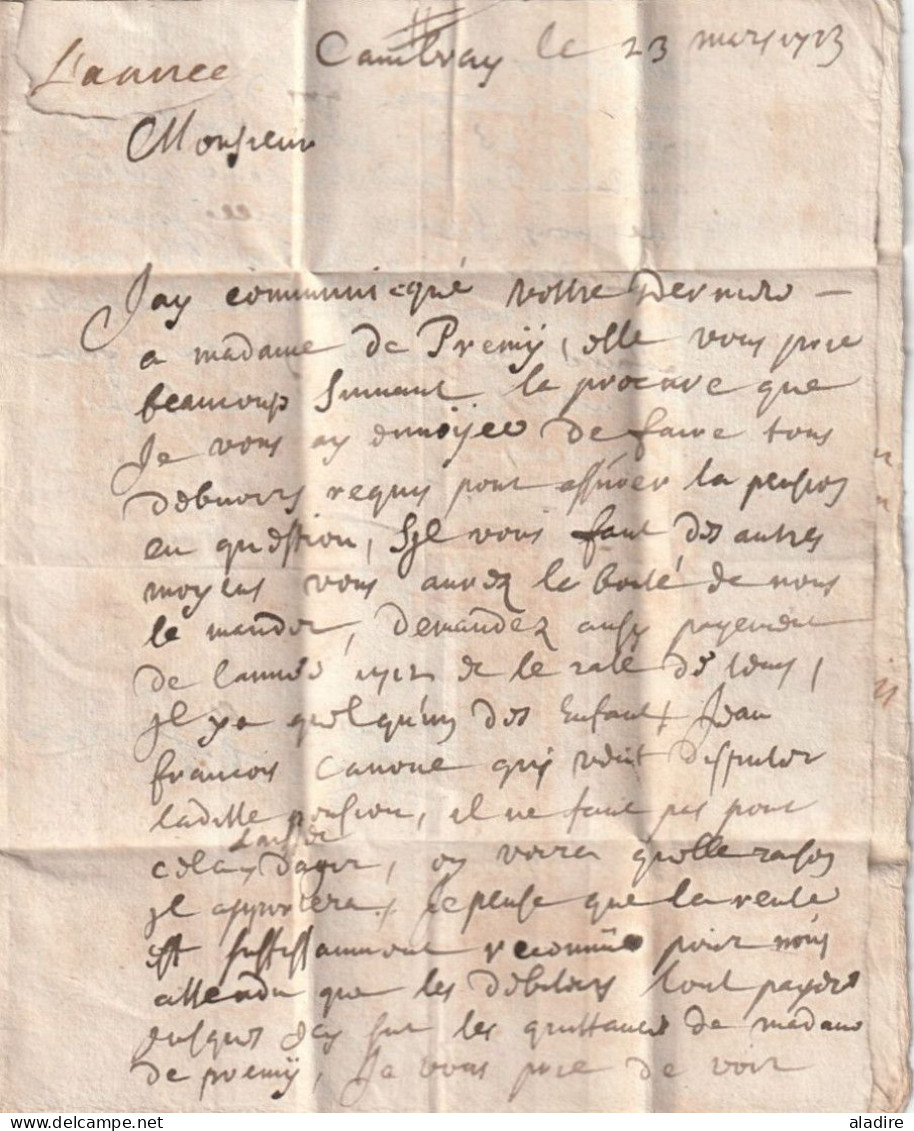 Cambray le 23 mars 1713
L'année
Monsieur
Jay communicqué vostre derniere
a madame de Premÿ, elle vous prie
beaucoup suivant la procure que
Je vous ay envoÿee de faire tous
debvoirs requis pour assurer la pension
en question, Syl vous faut des autres
moyens vous aurez la bonté de nous
le mander, demandez aussy payement
de l'année 1712 de le rate de tems,
jl ya quelqu'un des Enfants Jean
francois Canone quy veut disputer
laditte pension, il ne faut pas pour
laisser
cela d'agir, on voira quelle raison
jl apportera, Je pense que la rente
est suffissamment reconnüe pour nous
attendu que les debiteurs l'ont payée
jusques Jay sur les quittances de madame
de premÿ, Je vous prie de voir
aladire